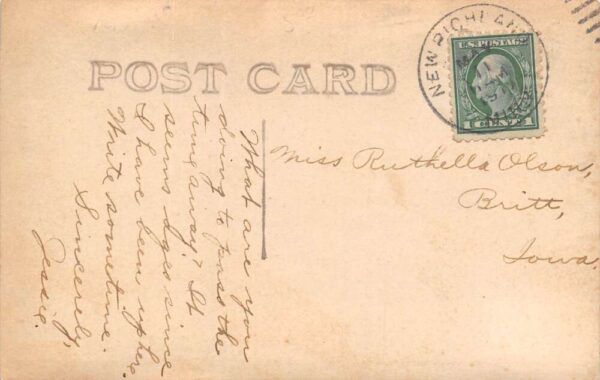 POST CARD
NEW RICHLAND
MINN.
U.S. POSTAGE
1 CENTS 1
Miss Ruthella Olson,
Britt,
Iowa.
What are you
doing to pass the
time away? It
seems ages since
I have been up here.
Write sometime.
Sincerely,
Jessie.